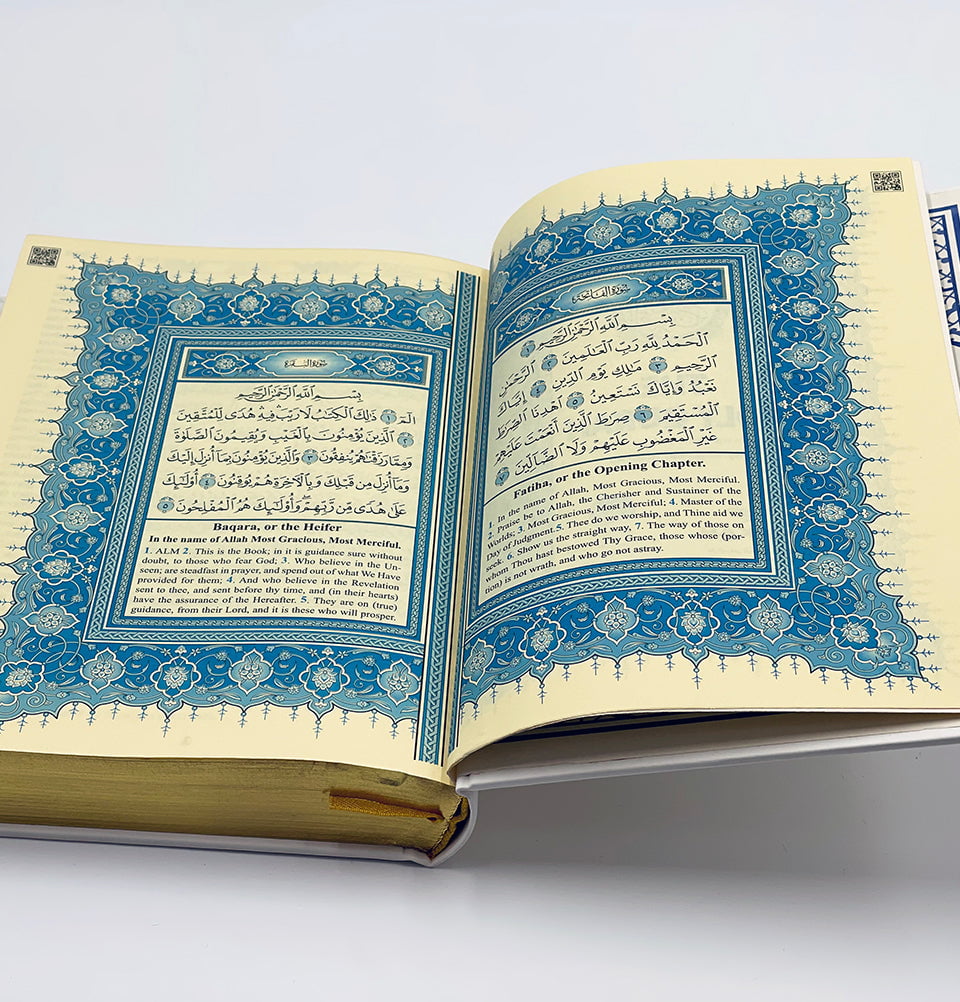 سُورَةُ الْفَاتِحَةِ
بِسْمِ اللهِ الرَّحْمٰنِ الرَّحِيمِ ١
اَلْحَمْدُ لِلّٰهِ رَبِّ الْعَالَمِينَ ٢ اَلرَّحْمٰنِ
الرَّحِيمِ ٣ مَالِكِ يَوْمِ الدِّينِ ٤ إِيَّاكَ
نَعْبُدُ وَإِيَّاكَ نَسْتَعِينُ ٥ اِهْدِنَا الصِّرَاطَ
الْمُسْتَقِيمَ ٦ صِرَاطَ الَّذِينَ أَنْعَمْتَ عَلَيْهِمْ
غَيْرِ الْمَغْضُوبِ عَلَيْهِمْ وَلَا الضَّالِّينَ ٧
Fatiha, or the Opening Chapter.
1. In the name of Allah, Most Gracious, Most Merciful.
2. Praise be to Allah, the Cherisher and Sustainer of the
Worlds; 3. Most Gracious, Most Merciful; 4. Master of the
Day of Judgment. 5. Thee do we worship, and Thine aid we
seek. 6. Show us the straight way, 7. The way of those on
whom Thou hast bestowed Thy Grace, those whose (por-
tion) is not wrath, and who go not astray.
سُورَةُ الْبَقَرَةِ
بِسْمِ اللهِ الرَّحْمٰنِ الرَّحِيمِ
الٓمٓ ١ ذٰلِكَ الْكِتَابُ لَا رَيْبَ فِيهِ هُدًى لِلْمُتَّقِينَ
٢ الَّذِينَ يُؤْمِنُونَ بِالْغَيْبِ وَيُقِيمُونَ الصَّلٰوةَ
وَمِمَّا رَزَقْنَاهُمْ يُنْفِقُونَ ٣ وَالَّذِينَ يُؤْمِنُونَ بِمَا أُنْزِلَ إِلَيْكَ
وَمَا أُنْزِلَ مِنْ قَبْلِكَ وَبِالْاٰخِرَةِ هُمْ يُوقِنُونَ ٤ أُولٰئِكَ
عَلٰى هُدًى مِنْ رَبِّهِمْ وَأُولٰئِكَ هُمُ الْمُفْلِحُونَ ٥
Baqara, or the Heifer
In the name of Allah Most Gracious, Most Merciful.
1. ALM 2. This is the Book; in it is guidance sure without
doubt, to those who fear God; 3. Who believe in the Un-
seen; are steadfast in prayer, and spend out of what We Have
provided for them; 4. And who believe in the Revelation
sent to thee, and sent before thy time, and (in their hearts)
have the assurance of the Hereafter. 5. They are on (true)
guidance, from their Lord, and it is these who will prosper.